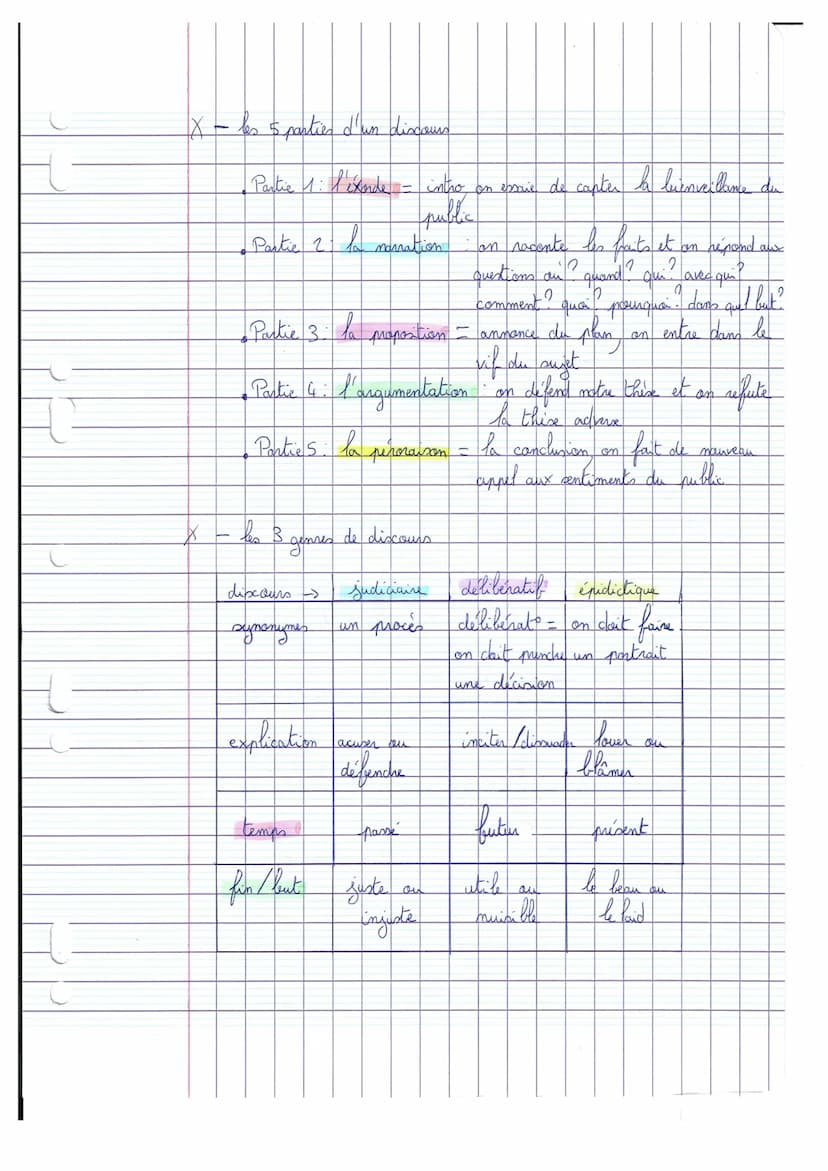 X - les 5 parties d'un discours
. Partie 1 : l'éxorde = intro, on essaie de capter la bienveillance du
public
. Partie 2 : la narration : on raconte les faits et on répond aux
questions où ? quand ? qui ? avec qui ?
comment ? quoi ? pourquoi ? dans quel but ?
. Partie 3 : la proposition = annonce du plan, on entre dans le
vif du sujet
. Partie 4 : l'argumentation : on défend notre thèse et on refute
la thèse adverse
. Partie 5 : la péroraison = la conclusion, on fait de nouveau
appel aux sentiments du public
X - les 3 genres de discours
discours -> judiciaire délibératif épidictique
synonymes un procès délibérat° = on doit faire
on doit prendre un portrait
une décision
explication acuser ou inciter / dissuader louer ou
défendre blâmer
temps passé futur présent
fin / but juste ou utile ou le beau ou
injuste nuisible le laid